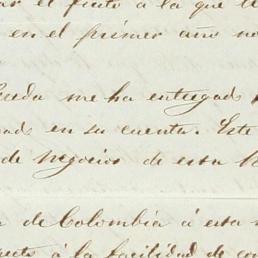 el fruto a la que
en el primer año no
me ha entregado
en su cuenta. Este
de negocios de esta
de Colombia á esta
á la facilidad de